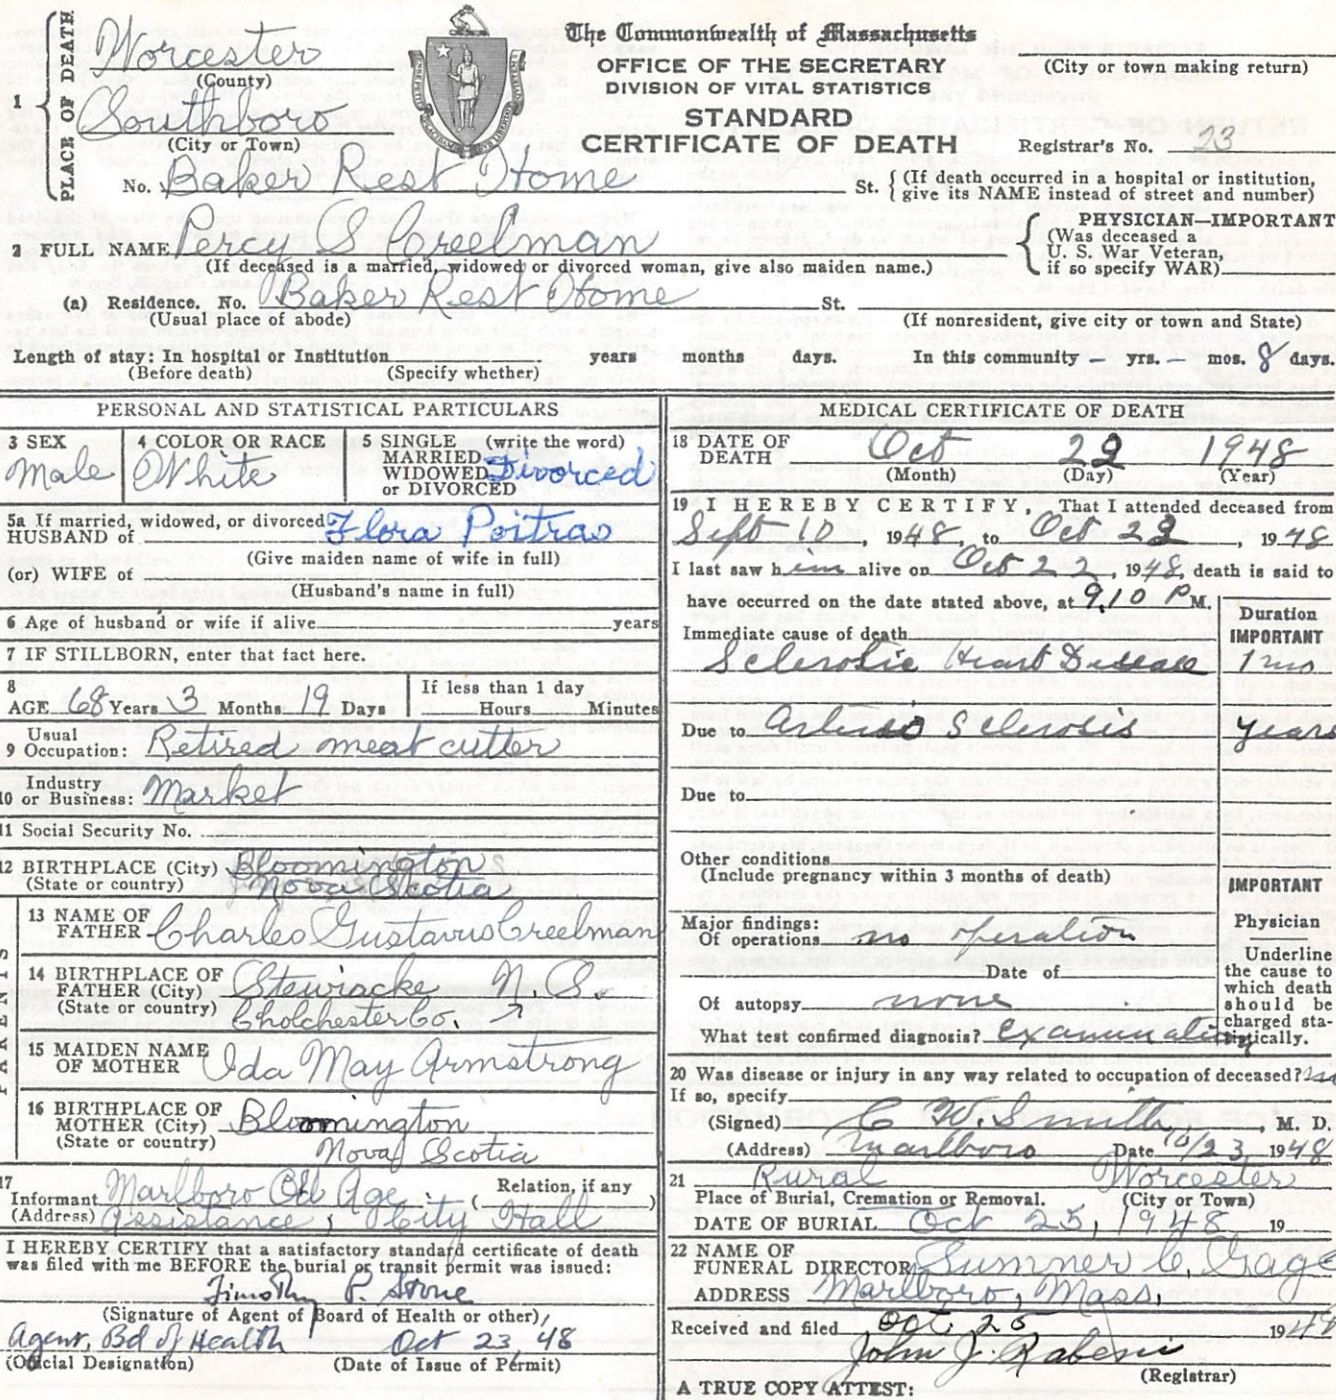 The Commonwealth of Massachusetts
OFFICE OF THE SECRETARY
DIVISION OF VITAL STATISTICS
STANDARD
CERTIFICATE OF DEATH
(City or town making return)
Registrar's No. 23
1 PLACE OF DEATH
Worcester
(County)
Southboro
(City or Town)
No. Baker Rest Home St. { (If death occurred in a hospital or institution,
give its NAME instead of street and number)
2 FULL NAME Percy S Creelman
(If deceased is a married, widowed or divorced woman, give also maiden name.)
PHYSICIAN—IMPORTANT
(Was deceased a
U. S. War Veteran,
if so specify WAR)
(a) Residence. No. Baker Rest Home St.
(Usual place of abode)
(If nonresident, give city or town and State)
Length of stay: In hospital or Institution years months days. In this community - yrs. - mos. 8 days.
(Before death) (Specify whether)
PERSONAL AND STATISTICAL PARTICULARS
3 SEX
Male
4 COLOR OR RACE
White
5 SINGLE (write the word)
MARRIED
WIDOWED Divorced
or DIVORCED
5a If married, widowed, or divorced
HUSBAND of Flora Poitras
(Give maiden name of wife in full)
(or) WIFE of
(Husband's name in full)
6 Age of husband or wife if alive years
7 IF STILLBORN, enter that fact here.
8
AGE 68 Years 3 Months 19 Days
If less than 1 day
Hours Minutes
Usual
9 Occupation: Retired meat cutter
Industry
10 or Business: Market
11 Social Security No.
12 BIRTHPLACE (City) Bloomington
(State or country) Nova Scotia
PARENTS
13 NAME OF
FATHER Charles Gustavus Creelman
14 BIRTHPLACE OF
FATHER (City) Stewiacke N.S.
(State or country) Cholchester Co.
15 MAIDEN NAME
OF MOTHER Ida May Armstrong
16 BIRTHPLACE OF
MOTHER (City) Bloomington
(State or country) Nova Scotia
17
Informant Marlboro Old Age ( Relation, if any )
(Address) Assistance, City Hall
I HEREBY CERTIFY that a satisfactory standard certificate of death
was filed with me BEFORE the burial or transit permit was issued:
Timothy P. Stone
(Signature of Agent of Board of Health or other)
Agent, Bd of Health Oct 23, 48
(Official Designation) (Date of Issue of Permit)
MEDICAL CERTIFICATE OF DEATH
18 DATE OF
DEATH Oct 22 1948
(Month) (Day) (Year)
19 I HEREBY CERTIFY, That I attended deceased from
Sept 10, 1948, to Oct 22, 1948
I last saw him alive on Oct 22, 1948, death is said to
have occurred on the date stated above, at 9.10 P M.
Duration
IMPORTANT
Immediate cause of death
Sclerotic Heart Disease 1 mo
Due to Arterio Sclerosis years
Due to
Other conditions
(Include pregnancy within 3 months of death)
IMPORTANT
Major findings:
Of operations no operation
Date of
Of autopsy none
What test confirmed diagnosis? examination
Physician
Underline
the cause to
which death
should be
charged sta-
tistically.
20 Was disease or injury in any way related to occupation of deceased? no
If so, specify
(Signed) C W. Smith, M. D.
(Address) Marlboro Date 10/23 1948
21 Rural Worcester
Place of Burial, Cremation or Removal. (City or Town)
DATE OF BURIAL Oct 25, 1948 19
22 NAME OF
FUNERAL DIRECTOR Sumner C. Gage
ADDRESS Marlboro, Mass.
Received and filed Oct. 25 1948
John J.
(Registrar)
A TRUE COPY ATTEST: